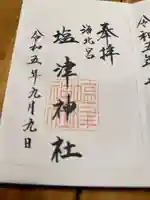 奉拝
海北宮
塩津神社
令和五年九月九日